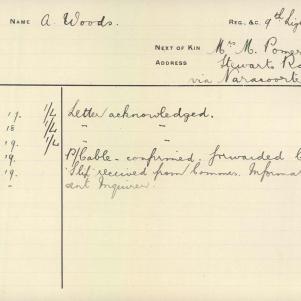 NAME A. Woods. REG. &C. 9th Lig
NEXT OF KIN Mrs M. Pomer
ADDRESS Stewarts Ra
via Naracoorte
17. 1/4 Letter acknowledged.
18 1/4 " "
19. 1/4 " "
19. P/Cable - confirmed, forwarded
19. received from Commrs. Informat
- sent Inquirer.